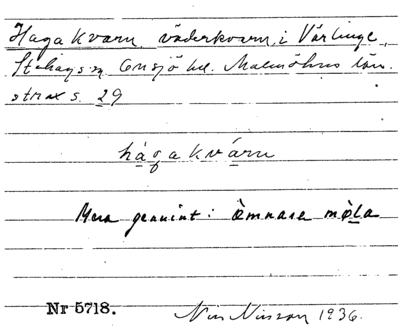 Haga kvarn, väderkvarn, i Värlinge,
St. Hags sn. Onsjö hd. Malmöhus län.
strax s. 29
hágakvárn
Mera genuint: òmnasa mòla
Nr 5718.
Nils Nilsson 1936.